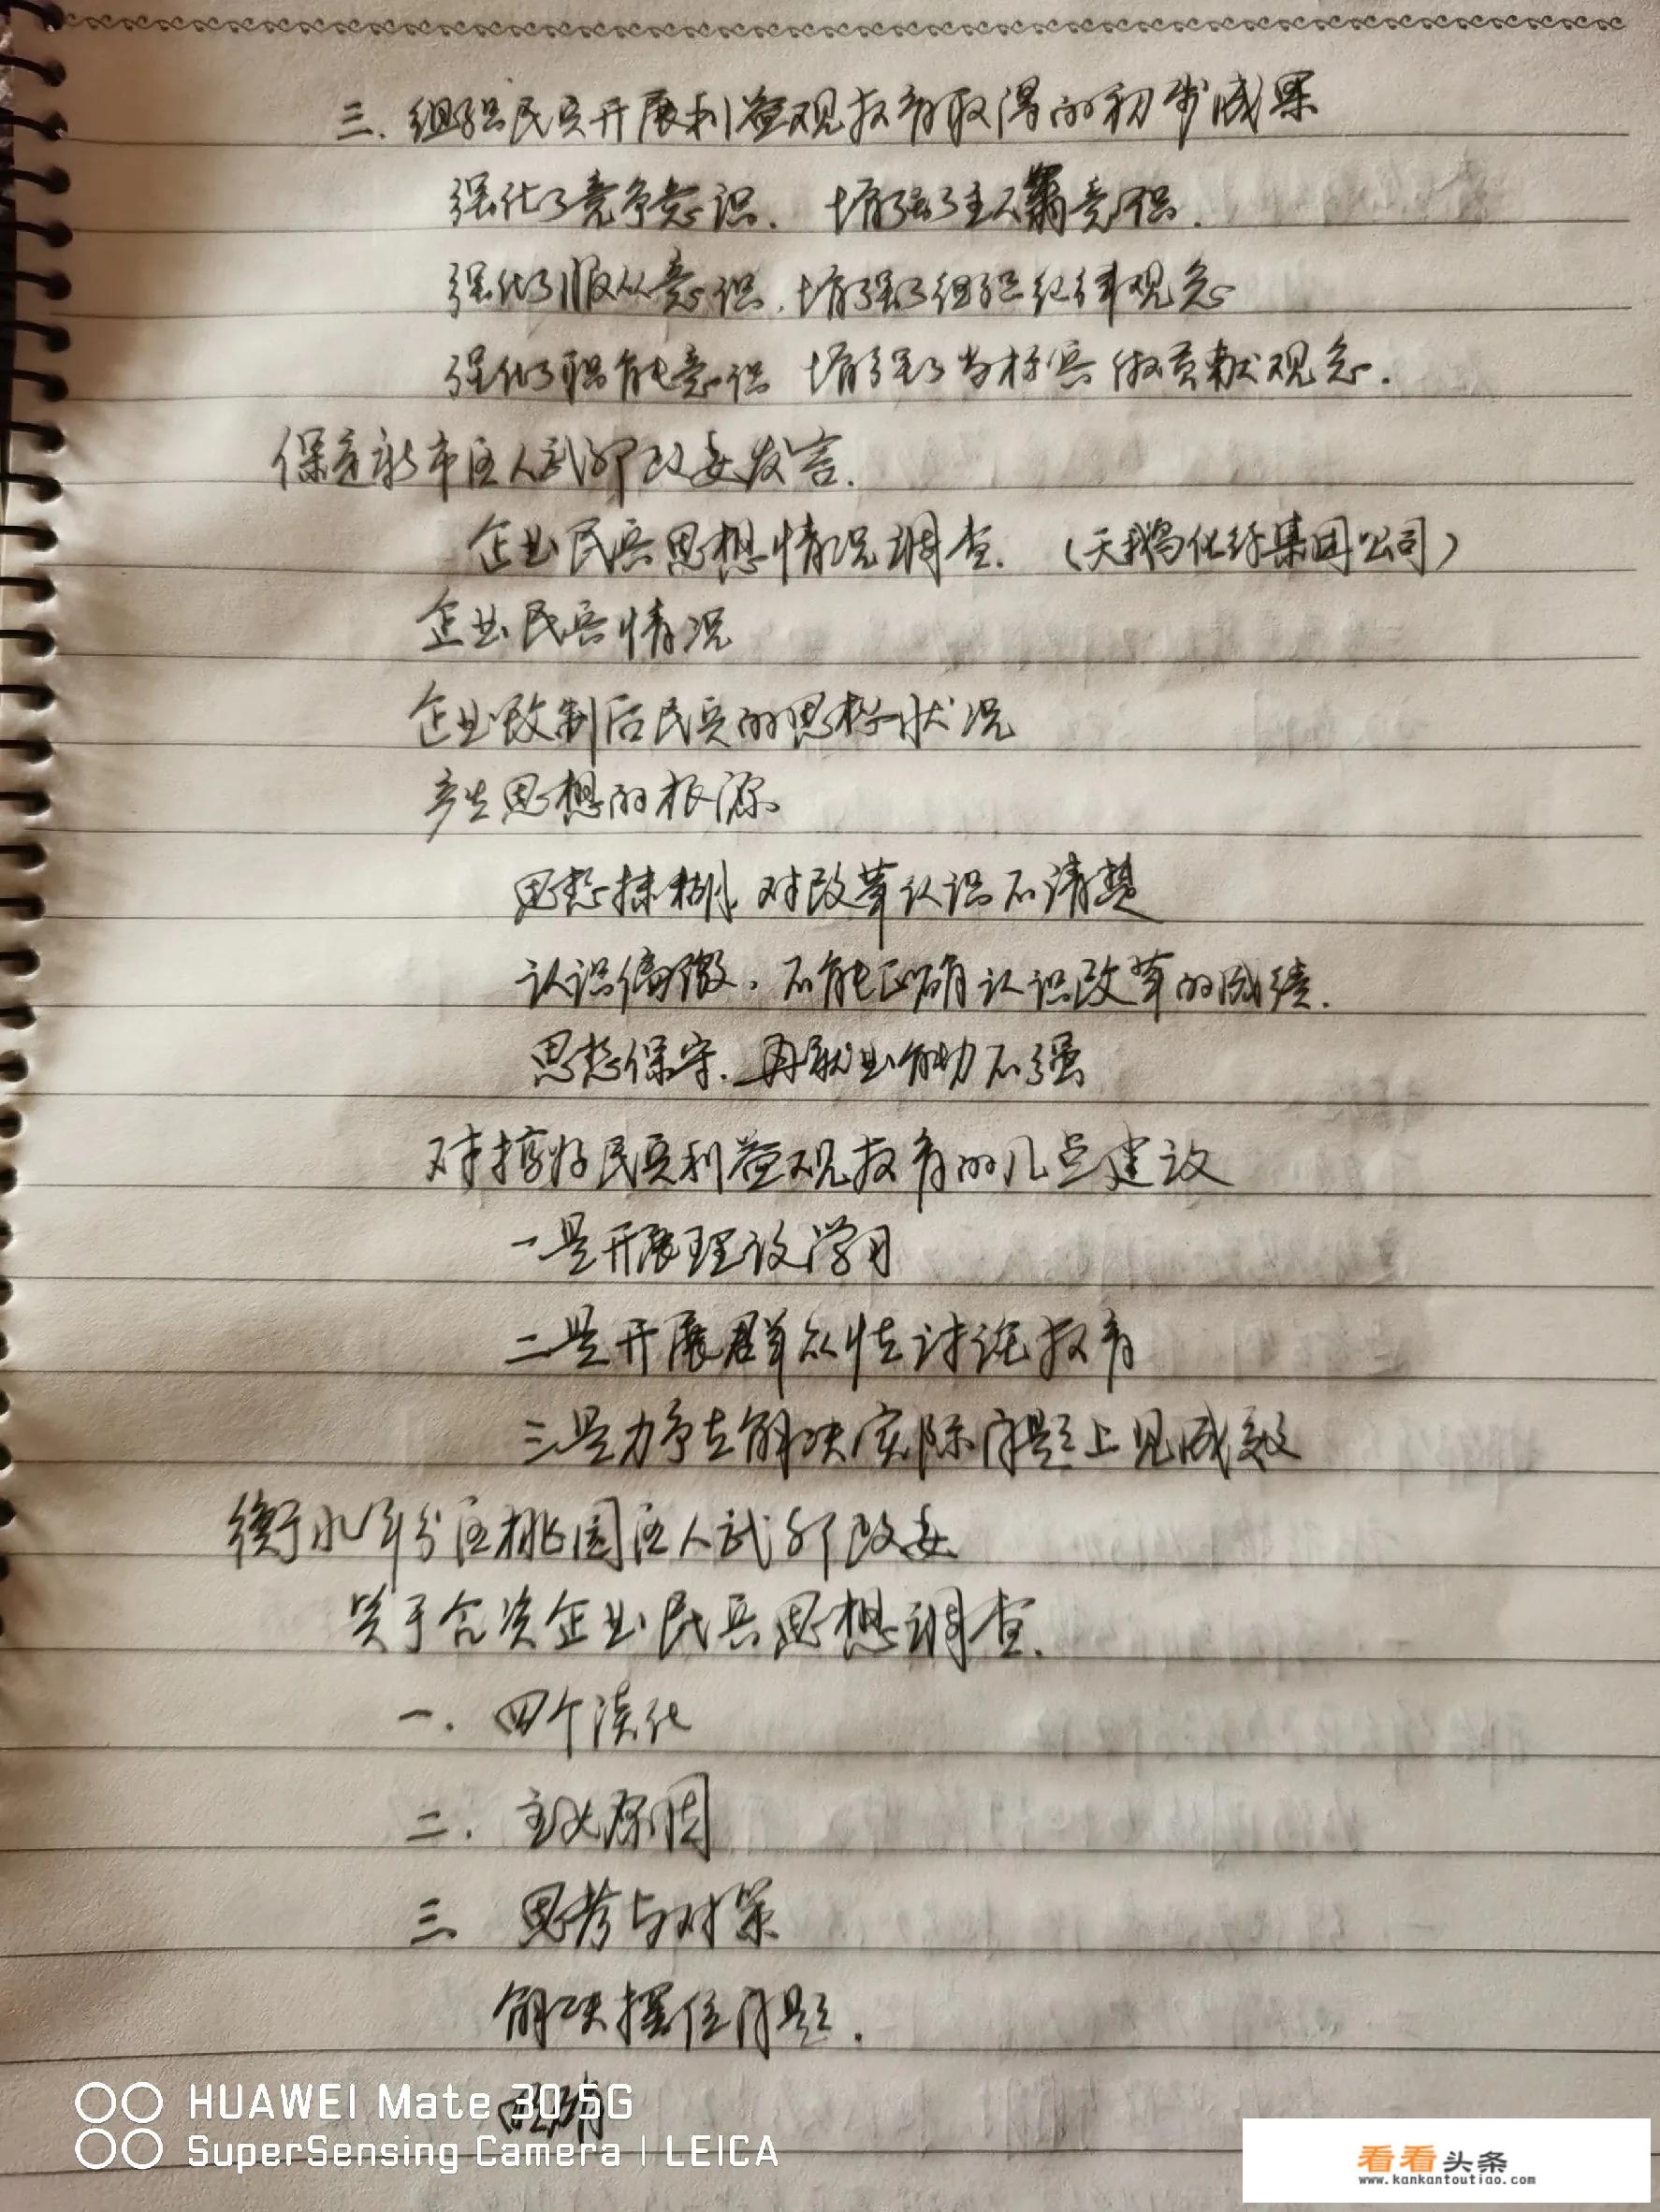 三. 组织民兵开展利益观教育取得的初步成果
强化了竞争意识. 增强了主人翁意识.
强化了服从意识. 增强了组织纪律观念
强化了职能意识 增强了当标兵做贡献观念.
保定新市区人武部政委发言.
企业民兵思想情况调查. (天鹅化纤集团公司)
企业民兵情况
企业改制后民兵的思想状况
产生思想的根源.
思想模糊, 对改革认识不清楚
认识偏激. 不能正确认识改革的成绩.
思想保守. 再就业能力不强
对搞好民兵利益观教育的几点建议
一是开展理论学习
二是开展群众性讨论教育
三是力争在解决实际问题上见成效
衡水军分区桃园区人武部政委
关于合资企业民兵思想调查.
一. 四个淡化
二. 主要原因
三 思考与对策
解决摆位问题.
HUAWEI Mate 30 5G
SuperSensing Camera | LEICA
看看头条
www.kankantoutiao.com